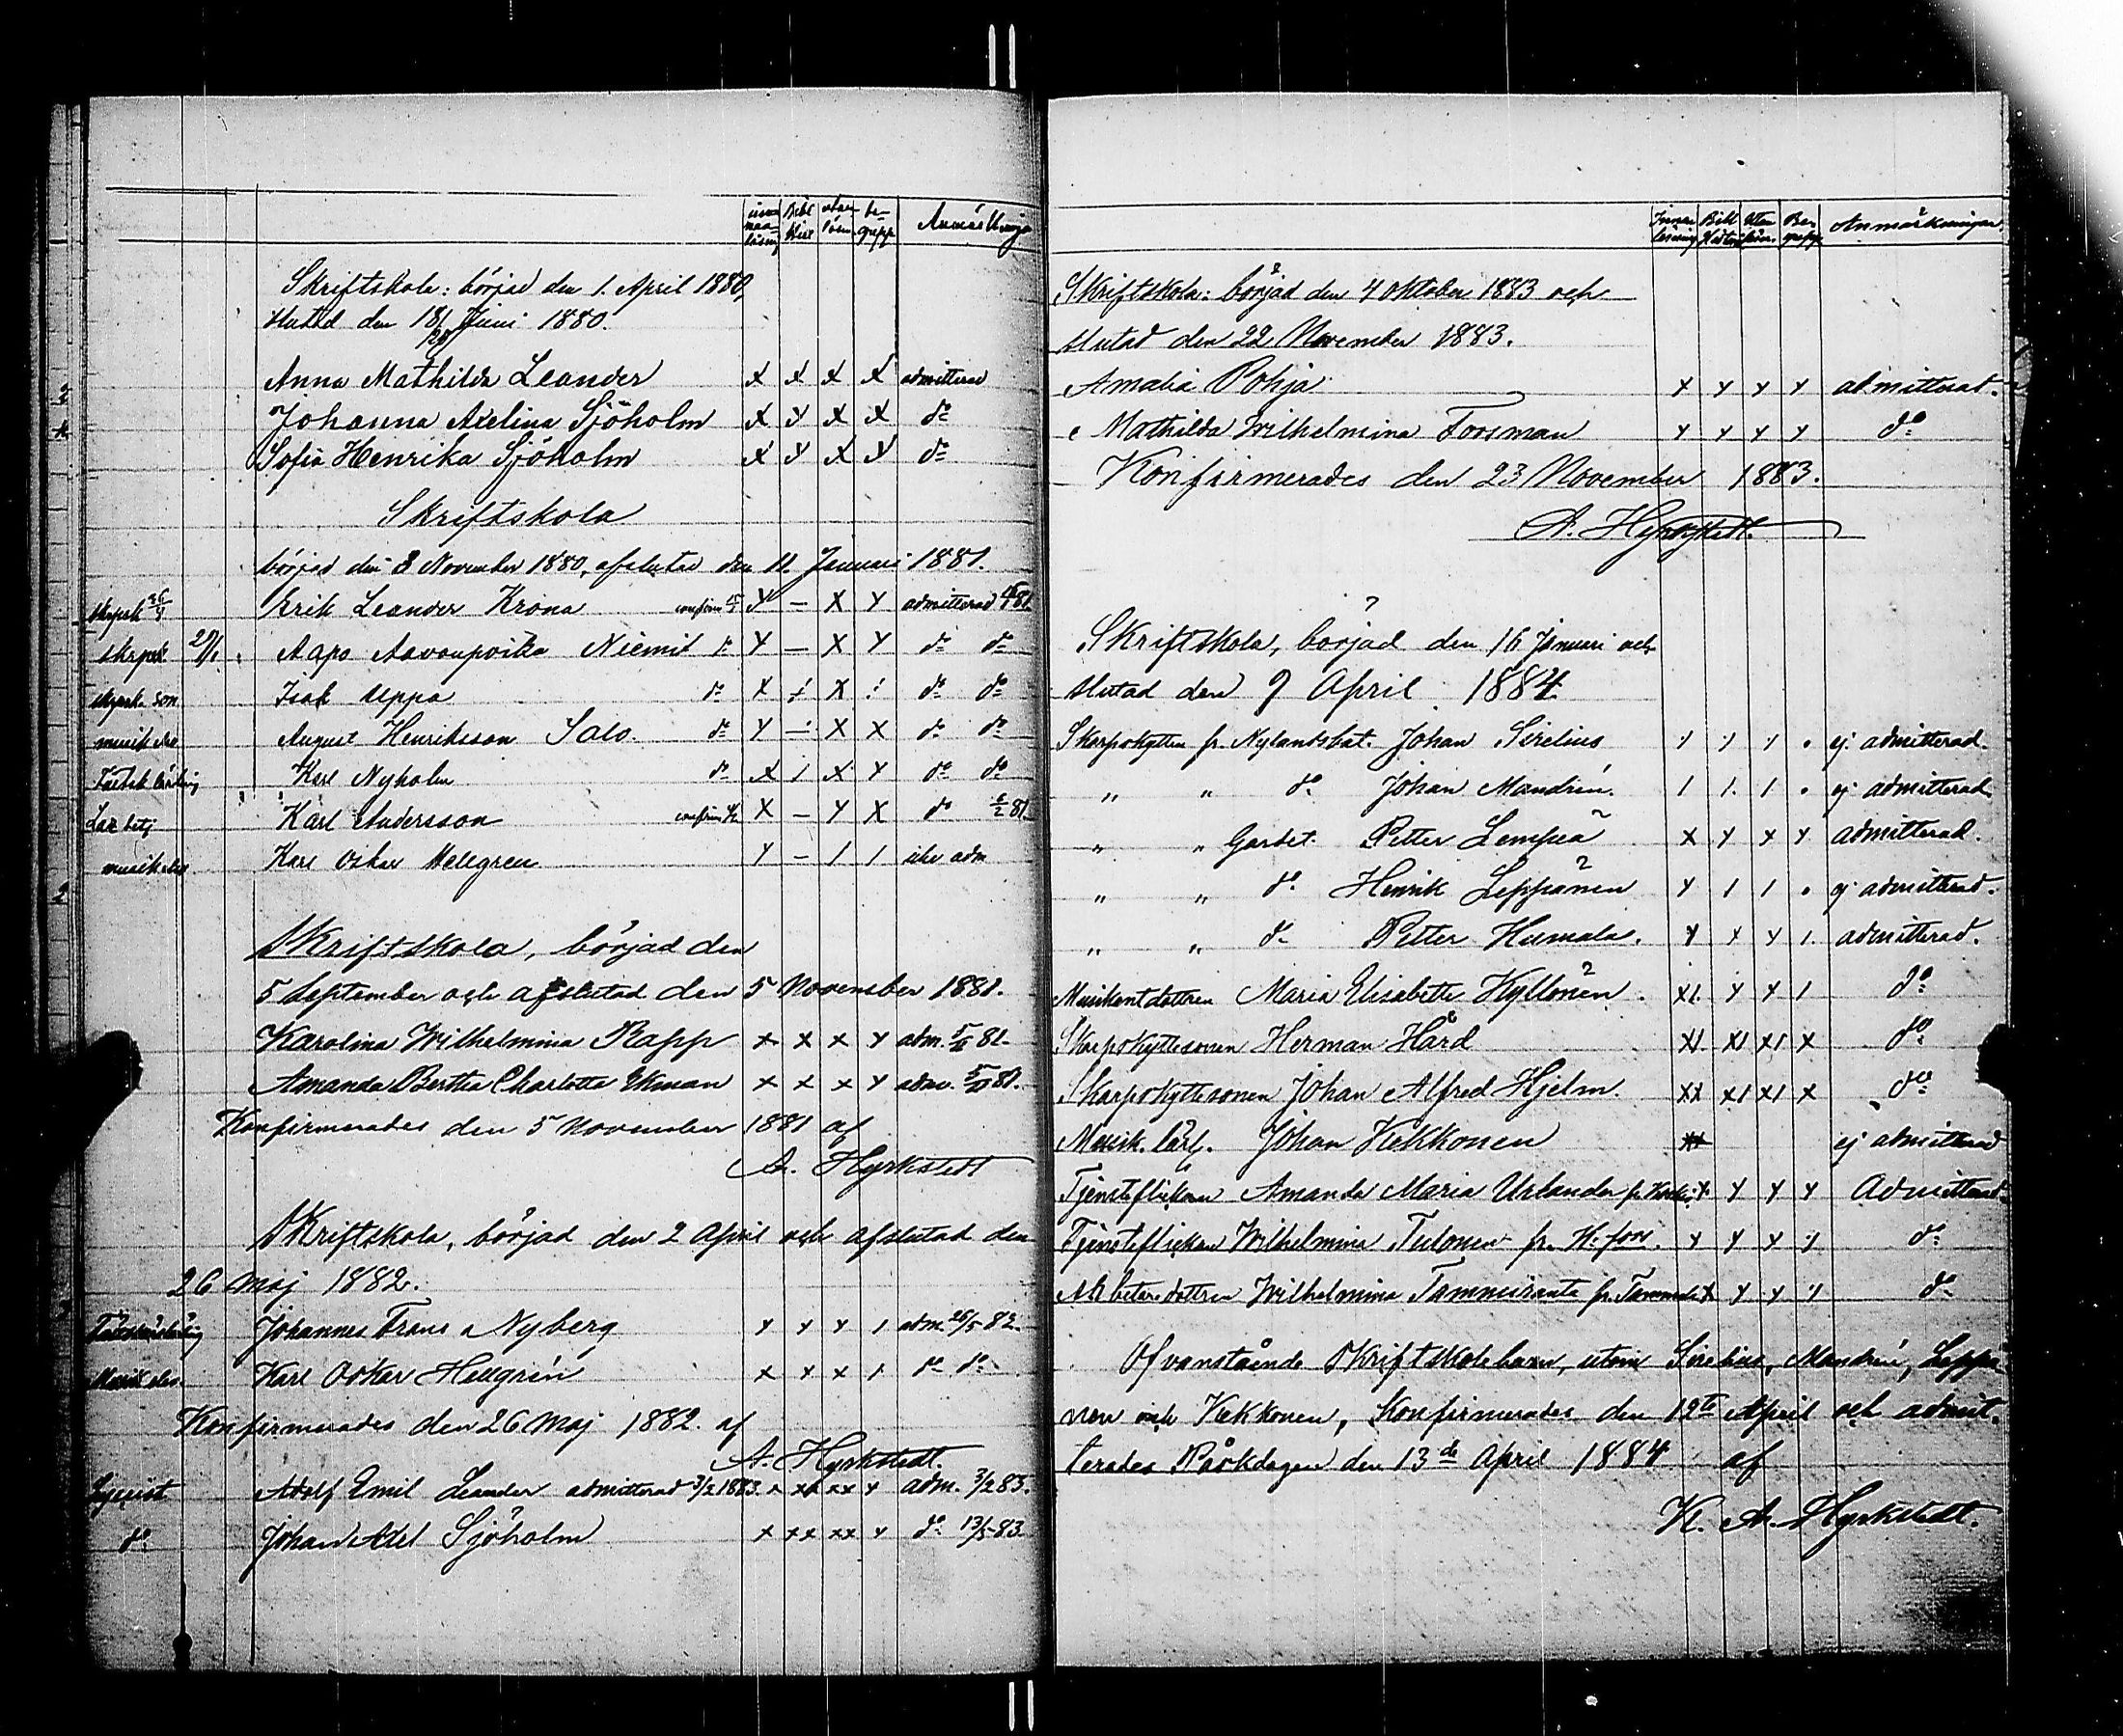 innanläsning Bibl. Hist. utanläsn. begrepp Anmärkningar
Skriftskola: börjad den 1. April 1880,
slutad den 18/20 Juni 1880.
Anna Mathilda Leander X X X X admitterad
Johanna Axelina Sjöholm X Y X X do
Sofia Henrika Sjöholm X Y X Y do
Skriftskola
börjad den 3 November 1880, afslutad den 11. Januari 1881.
Erik Leander Krona Y — X Y admitterad
Aapo Aavanpoika Niemit Y — X Y do do
Isak Uppa do X X do do
August Henriksson Salo. do Y X X do do
Karl Nyholm do X / X Y do do
Karl Andersson X — Y X do 6/2 81.
Karl Oskar Hellgren Y — / / icke adm
Skriftskola, börjad den
5 September och afslutad den 5 November 1881.
Karolina Wilhelmina Rapp x x x x adm. 5/11 81.
Amanda Bertha Charlotta Ekman x x x x adm. 5/11 81.
Konfirmerades den 5 November 1881 af
A. Hyrkstedt
Skriftskola, börjad den 2 April och afslutad den
26 Maj 1882.
Johannes Frans Nyberg x x x / adm. 26/5 82.
Musik elev. Karl Oskar Hellgrén x x x / do do
Konfirmerades den 26 Maj 1882. af
A. Hyrkstedt.
Adolf Emil Leander admitterad 3/2 1883. x xx xx x adm. 3/2 83.
do Johan Axel Sjöholm x xx xx x do 13/5 83.
Innanläsning Bibl. Histori Utanläsn. Begrepp Anmärkningar.
Skriftskola: börjad den 4 Oktober 1883 och
slutad den 22 November 1883.
Amalia Pohja x y y y admitterad.
Mathilda Wilhelmina Forsman y y y y do
Konfirmerades den 23 November 1883.
A. Hyrkstedt.
Skriftskola, börjad den 16 Januari och
slutad den 9 April 1884.
Skarpskytten fr. Nylandsbat. Johan Sirelius y y y . ej admitterad.
„ „ do Johan Mandrén. / / / . ej admitterad.
„ „ Gardet. Petter Lempiä x y x y admitterad.
„ „ do Henrik Leppänen y / / . ej admitterad.
„ „ do Petter Humala. y x y / admitterad.
Musikantdottren Maria Elisabeth Kyllönen. x/ y y / do
Skarpskyttesonen Herman Hård x/ x/ x/ x do
Skarpskyttesonen Johan Alfred Hjelm. xx x/ x/ x do
Musik. lärl. Johan Kekkonen ej admitterad
Tjensteflickan Amanda Maria Urlander y y y y Admitterad
Tjensteflickan Wilhelmina Tulonen fr. H:fors. y y x y do
Arbetaredottren Wilhelmina Tammiranta fr. Tammela x y y y do
Ofvanstående Skriftskolebarn, utom Sirelius, Mandrén, Leppä-
nen och Kekkonen, Konfirmerades den 12te April och admit-
terades Påskdagen den 13de April 1884 af
K. A. Hyrkstedt.